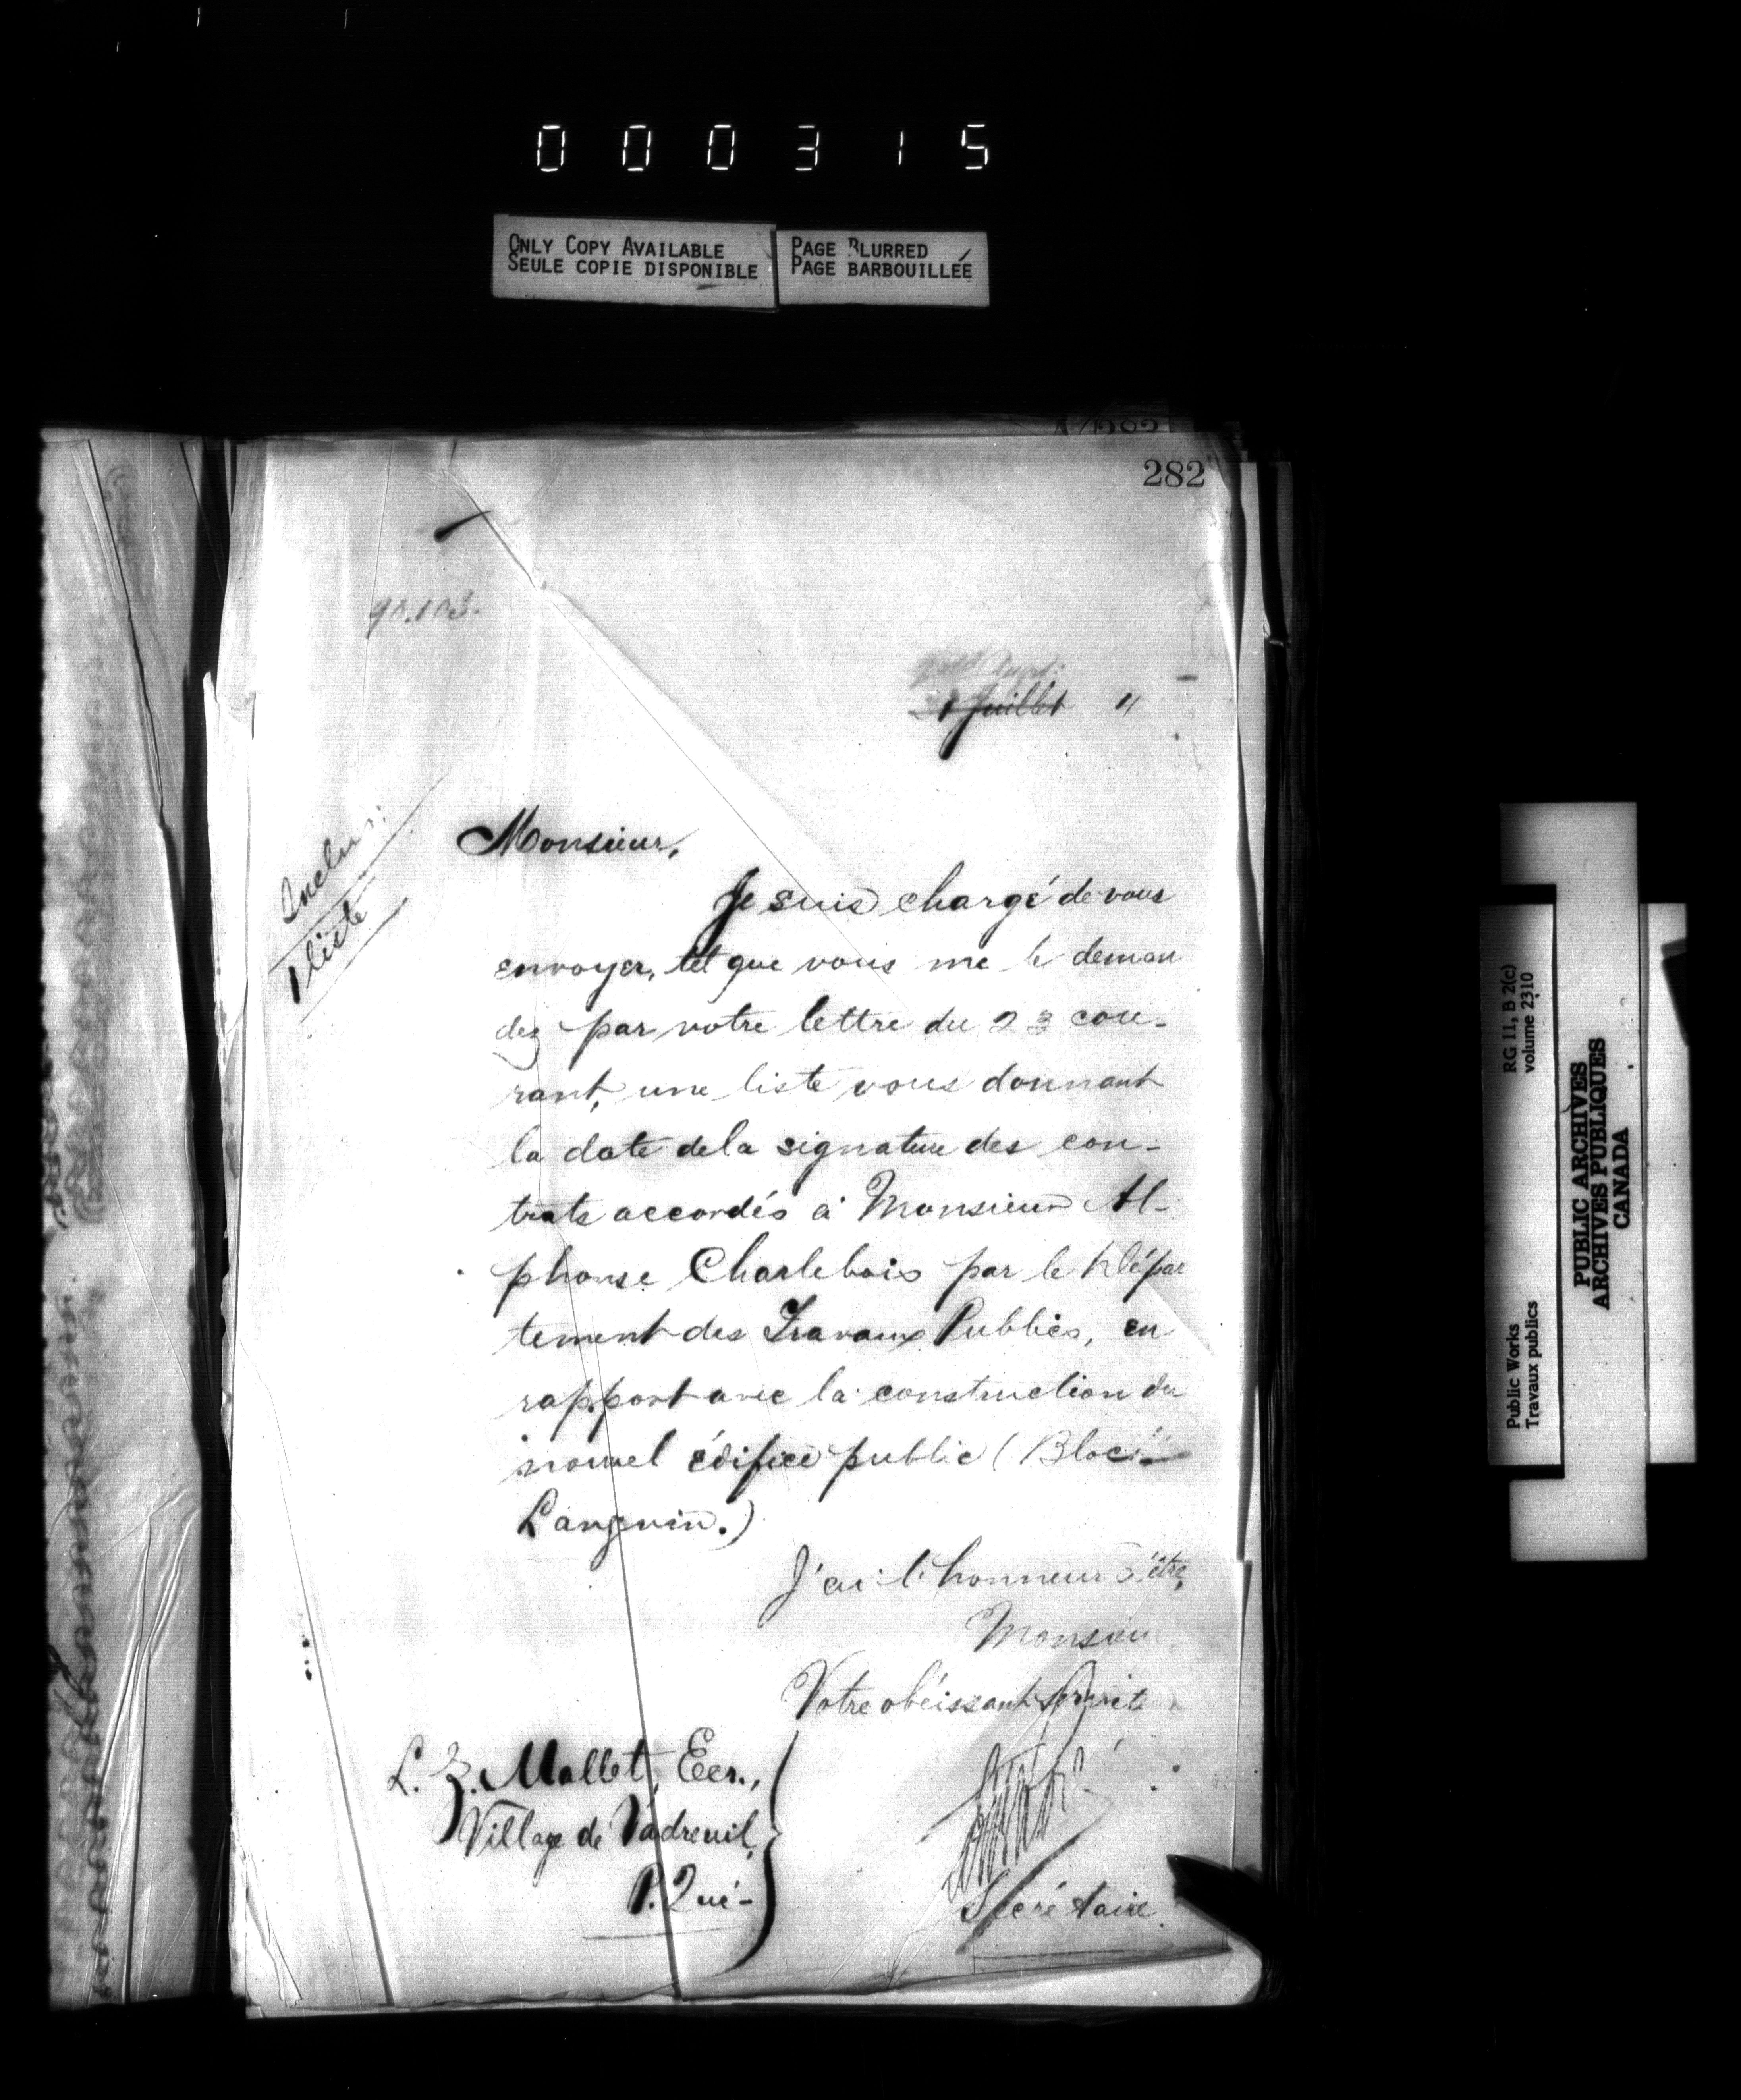 000315
ONLY COPY AVAILABLE
SEULE COPIE DISPONIBLE
PAGE BLURRED
PAGE BARBOUILLÉE
282
90.103.
Juillet "
Inclus:
1 liste
Monsieur,
Je suis chargé de vous
envoyer, tel que vous me le deman
dez par votre lettre du 23 cou-
rant, une liste vous donnant
la date de la signature des con-
trats accordés à Monsieur Al-
phonse Charlebois par le Dépar
tement des Travaux Publics, en
rapport avec la construction du
nouvel édifice public (Bloc
Langevin.)
J'ai l'honneur d'être,
Monsieur
Votre obéissant servit
Secrétaire
L. Z. Mallet, Ecr.,
Village de Vadreuil,
P. Qué-
RG 11, B 2(c)
volume 2310
Public Works
Travaux publics
PUBLIC ARCHIVES
ARCHIVES PUBLIQUES
CANADA